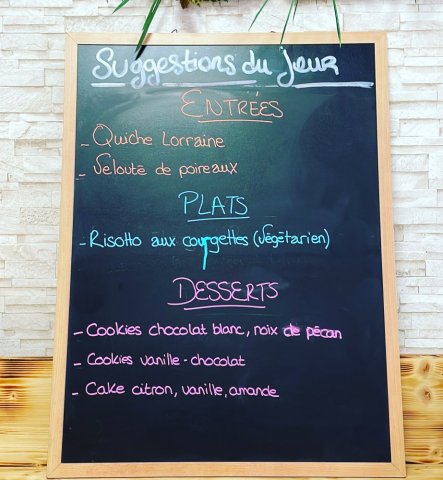 Suggestions du jour
ENTRÉES
- Quiche Lorraine
- Velouté de poireaux
PLATS
- Risotto aux courgettes (Végétarien)
DESSERTS
- Cookies chocolat blanc, noix de pécan
- Cookies vanille - chocolat
- Cake citron, vanille, amande